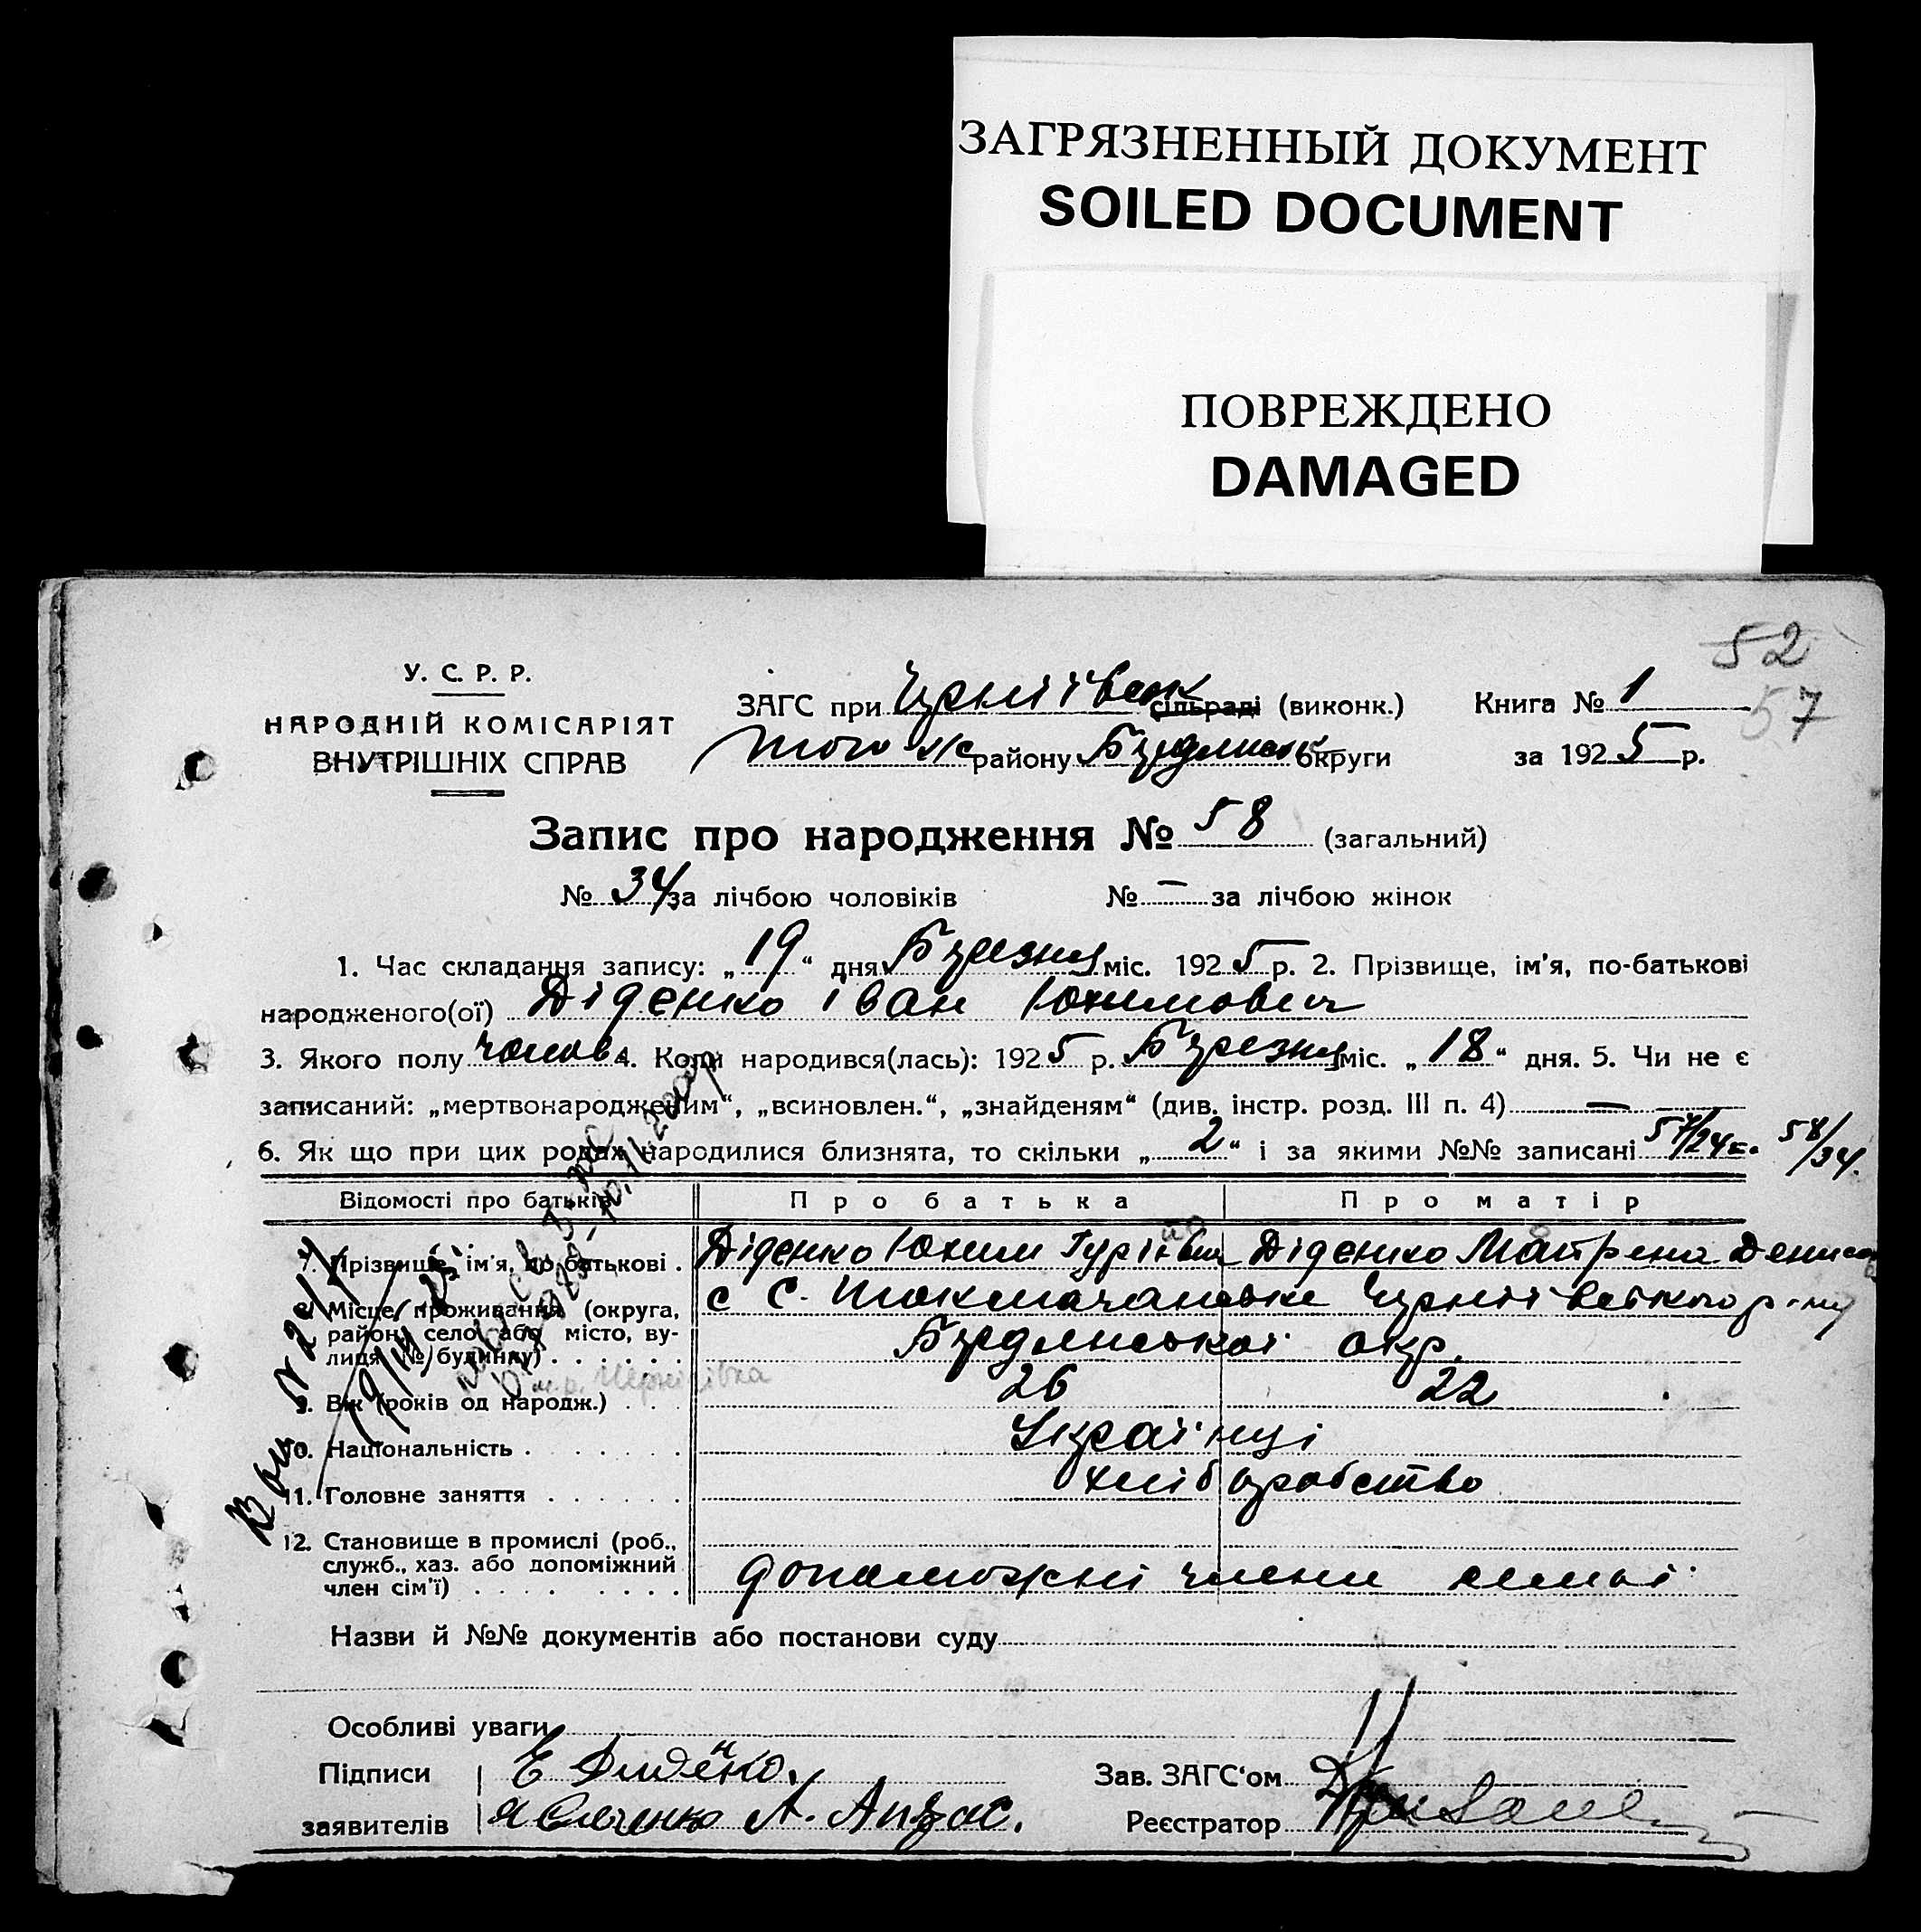 ЗАГРЯЗНЕННЫЙ ДОКУМЕНТ
SOILED DOCUMENT
ПОВРЕЖДЕНО
DAMAGED
52
57
У. С. Р. Р.
НАРОДНІЙ КОМІСАРІЯТ
ВНУТРІШНІХ СПРАВ
ЗАГС при сільраді (виконк.) Книга № 1
того ж району округи за 1925 р.
Запис про народження № 58 (загальний)
№ 34 за лічбою чоловіків № — за лічбою жінок
1. Час складання запису: „19“ дня Березня міс. 1925 р. 2. Прізвище, ім'я, по-батькові
народженого(ої) Діденко Іван Юхимович
3. Якого полу чолов. 4. Коли народився(лась): 1925 р. Березня міс. „18“ дня. 5. Чи не є
записаний: „мертвонародженим“, „всиновлен.“, „знайденям“ (див. інстр. розд. III п. 4) —
6. Як що при цих родах народилися близнята, то скільки „2“ і за якими №№ записані 57/24 58/34.
Відомості про батьків Про батька Про матір
7. Прізвище, ім'я, по батькові . Діденко Юхим Діденко Мотрена Денисов
8. Місце проживання (округа, район, село або місто, вулиця № будинку) . . . . . . с С. Токмачанське
Бердянської окр.
м.р. Чернігівка
9. Вік (років од народж.) . . . 26 22
10. Національність . . . . . . Українці
11. Головне заняття . . . . . . хліборобство
12. Становище в промислі (роб., служб., хаз. або допоміжний член сім'ї) . . . . . . . . . допоможні члени семьї
Назви й №№ документів або постанови суду
Особливі уваги
Підписи Е Диденко. Зав. ЗАГС'ом
заявителів Реєстратор